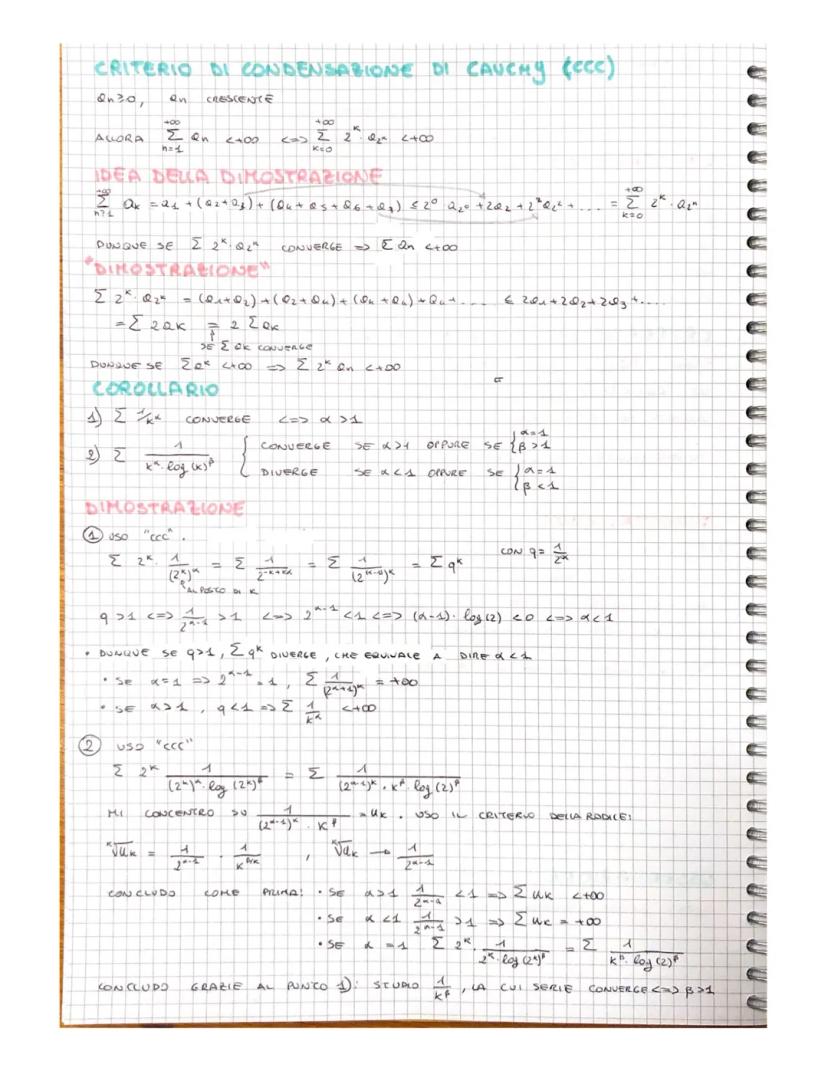 CRITERIO DI CONDENSAZIONE DI CAUCHY (CCC)
an≥0, an CRESCENTE
ALLORA Σ_{n=1}^{+∞} an <+∞ <=> Σ_{k=0}^{+∞} 2^k · a_{2^k} <+∞
IDEA DELLA DIMOSTRAZIONE
Σ_{n≥1}^{+∞} ak = a1 + (a2+a3) + (a4+a5+a6+a7) ≤ 2^0 a_{2^0} + 2a2 + 2^2 a_{2^2} + .... = Σ_{k=0}^{+∞} 2^k · a_{2^k}
DUNQUE SE Σ 2^k · a_{2^k} CONVERGE => Σ an <+∞
"DIMOSTRAZIONE"
Σ 2^k · a_{2^k} = (a1+a2) + (a2+a4) + (a4+a4) + a4+.... ≤ 2a1+2a2+2a3+....
= Σ 2ak = 2 Σ ak
SE Σ ak CONVERGE
DUNQUE SE Σ ak <+∞ => Σ 2^k an <+∞
COROLLARIO
1) Σ 1/k^α CONVERGE <=> α>1
2) Σ 1/(k^α · log(k)^β) { CONVERGE SE α>1 OPPURE SE {α=1 β>1
DIVERGE SE α<1 OPPURE SE {α=1 β<1
DIMOSTRAZIONE
① USO "CCC".
Σ 2^k · 1/(2^k)^α = Σ 1/2^{-k+kα} = Σ 1/(2^{α-1})^k = Σ q^k CON q = 1/2^α
AL POSTO DI K
q>1 <=> 1/2^{α-1} >1 <=> 2^{α-1} <1 <=> (α-1) · log(2) <0 <=> α<1
• DUNQUE SE q>1, Σ q^k DIVERGE, CHE EQUIVALE A DIRE α<1
• SE α=1 => 2^{α-1} = 1, Σ 1/(2^{α+1})^k = +∞
• SE α>1, q<1 => Σ 1/k^α <+∞
② USO "CCC"
Σ 2^k 1/((2^k)^α · log(2^k)^β) = Σ 1/((2^{α-1})^k · k^β · log(2)^β)
MI CONCENTRO SU 1/((2^{α-1})^k · k^β) = uk. USO IL CRITERIO DELLA RADICE:
^k√uk = 1/2^{α-1} · 1/k^{β/k}, ^k√uk → 1/2^{α-1}
CONCLUDO COME PRIMA: • SE α>1 1/2^{α-1} <1 => Σ uk <+∞
• SE α<1 1/2^{α-1} >1 => Σ uk = +∞
• SE α=1 Σ 2^k · 1/(2^k · log(2^k)^β) = Σ 1/(k^β · log(2)^β)
CONCLUDO GRAZIE AL PUNTO 1): STUDIO 1/k^β, LA CUI SERIE CONVERGE <=> β>1